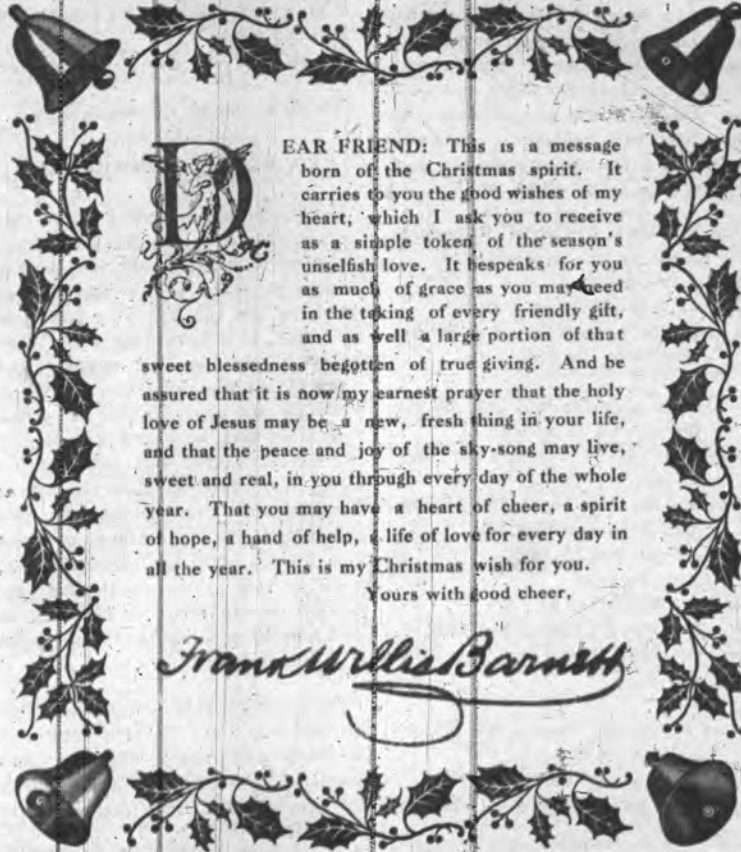 DEAR FRIEND: This is a message
born of the Christmas spirit. It
carries to you the good wishes of my
heart, which I ask you to receive
as a simple token of the season's
unselfish love. It bespeaks for you
as much of grace as you may need
in the taking of every friendly gift,
and as well a large portion of that
sweet blessedness begotten of true giving. And be
assured that it is now my earnest prayer that the holy
love of Jesus may be a new, fresh thing in your life,
and that the peace and joy of the sky-song may live,
sweet and real, in you through every day of the whole
year. That you may have a heart of cheer, a spirit
of hope, a hand of help, a life of love for every day in
all the year. This is my Christmas wish for you.
Yours with good cheer,
Frank Willis Barnett